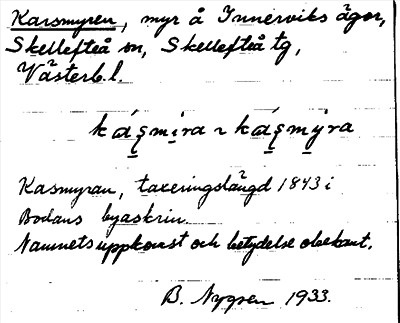 Karsmyren, myr å Innerviks ägor,
Skellefteå sn, Skellefteå tg,
Västerb. l.
Kasmyran, taxeringslängd 1843 i
Bodans byaskrin.
Namnets uppkomst och betydelse obekant.
B. Nygren 1933.